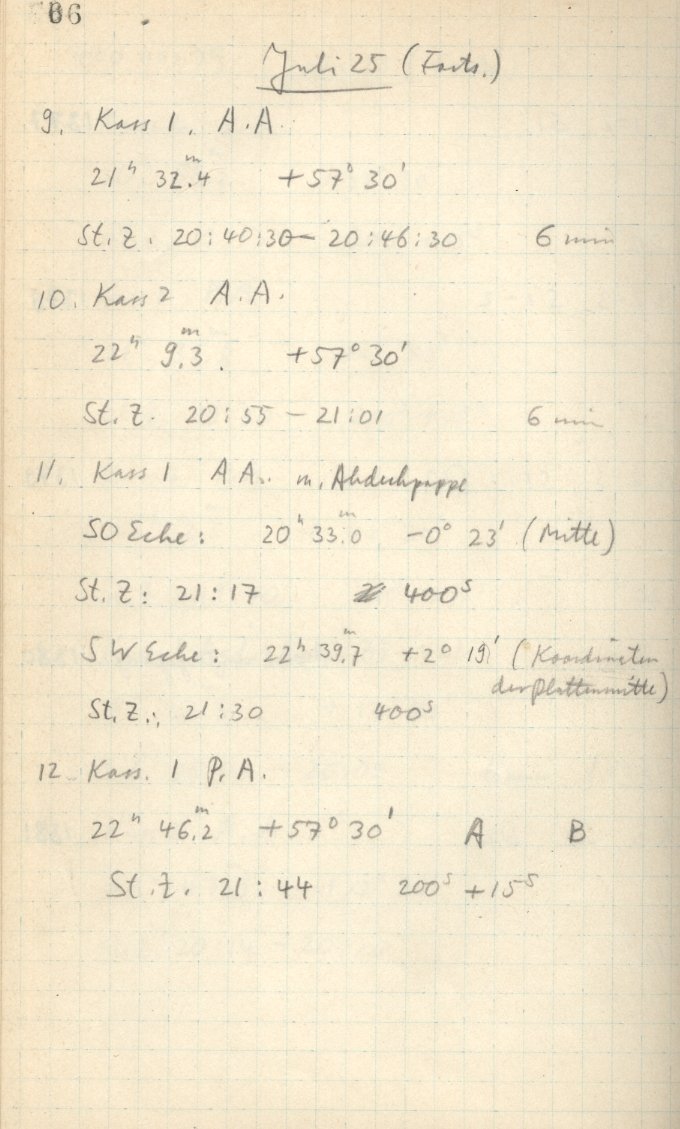 66
Juli 25 (Forts.)
9. Kass 1. A.A.
21ʰ 32ᵐ.4 +57° 30'
St.Z. 20:40:30 – 20:46:30 6 min
10. Kass 2 A.A.
22ʰ 9ᵐ.3. +57° 30'
St.Z. 20:55 – 21:01 6 min
11. Kass 1 AA. m. Abdeckpappe
SO Ecke: 20ʰ 33ᵐ.0 -0° 23' (Mitte)
St.Z: 21:17 400ˢ
SW Ecke: 22ʰ 39ᵐ.7 +2° 19' (Koordinaten
der Plattenmitte)
St.Z.: 21:30 400ˢ
12 Kass. 1 P.A.
22ʰ 46ᵐ.2 +57° 30' A B
St.Z. 21:44 200ˢ +15ˢ